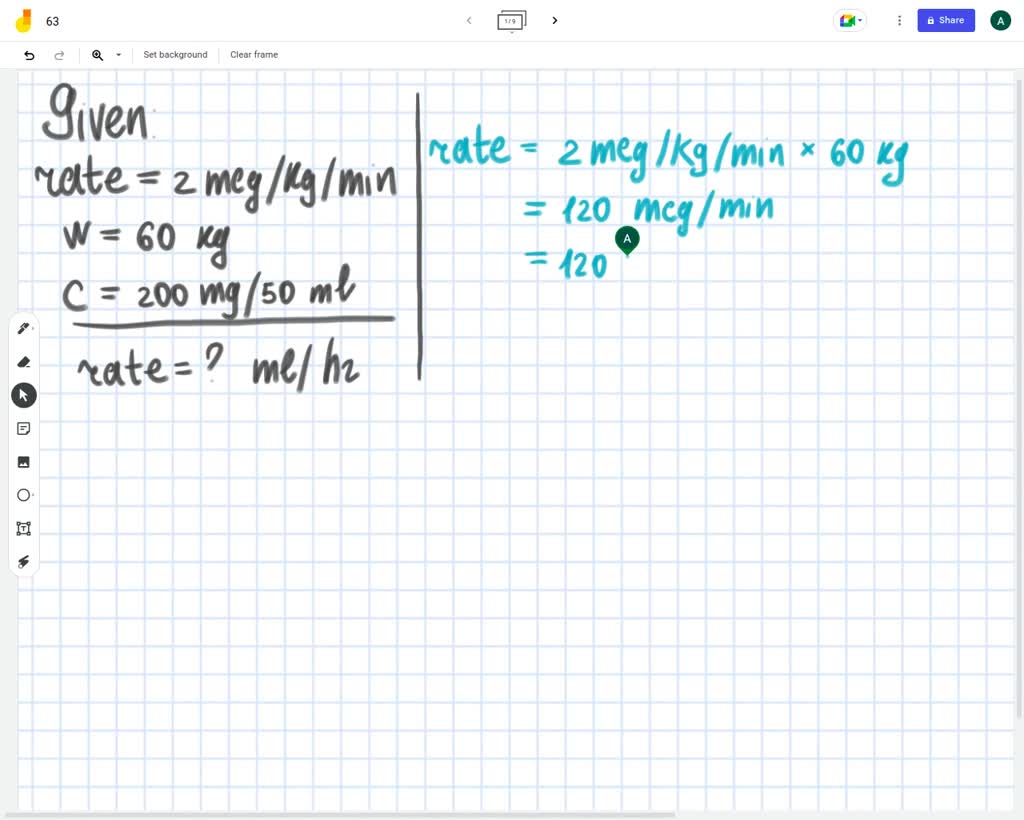 63
1/9
Share
A
Set background
Clear frame
Given:
rate = 2 mcg/kg/min
W = 60 kg
C = 200 mg/50 ml
rate = ? ml/hr
rate = 2 mcg/kg/min × 60 kg
= 120 mcg/min
A
= 120